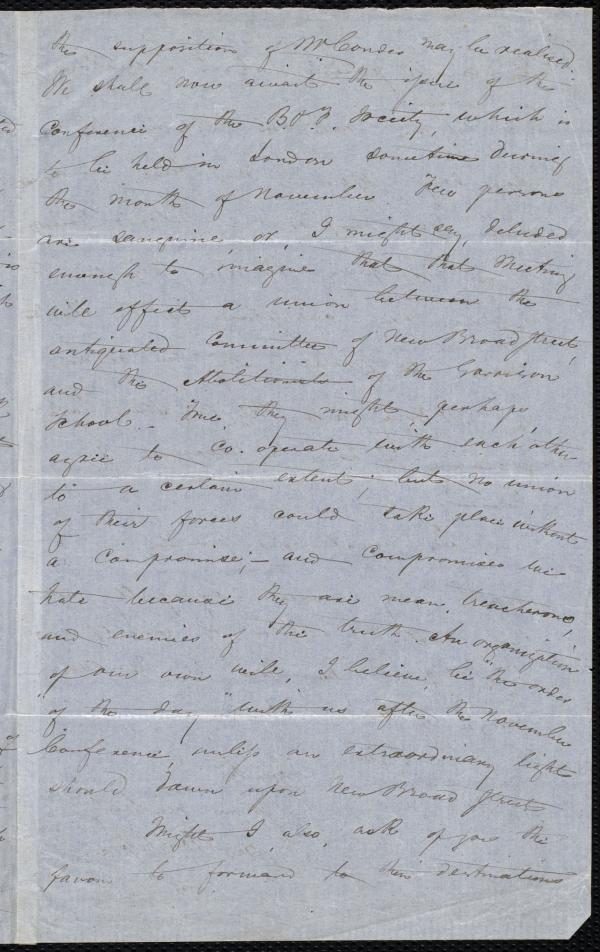 the supposition of Mr Conder may be realised.
We shall now await the issue of the
Conference of the B & F. Society, which is
to be held in London sometime during
the month of November. Few persons
are sanguine, or, I might say, deluded
enough to imagine that that Meeting
will effect a union between the
antiquated Committee of New Broad Street,
and the Abolitionists of the Garrison
School. True, they might, perhaps
agree to co-operate with each other
to a certain extent; but no union
of their forces could take place without
a compromise; — and compromises we
hate because they are mean, treacherous,
and enemies of the truth. An organization
of our own will, I believe, be "the order
of the day" with us after the November
Conference, unless an extraordinary light
should dawn upon New Broad Street.
Might I, also, ask of you the
favor to forward to their destinations